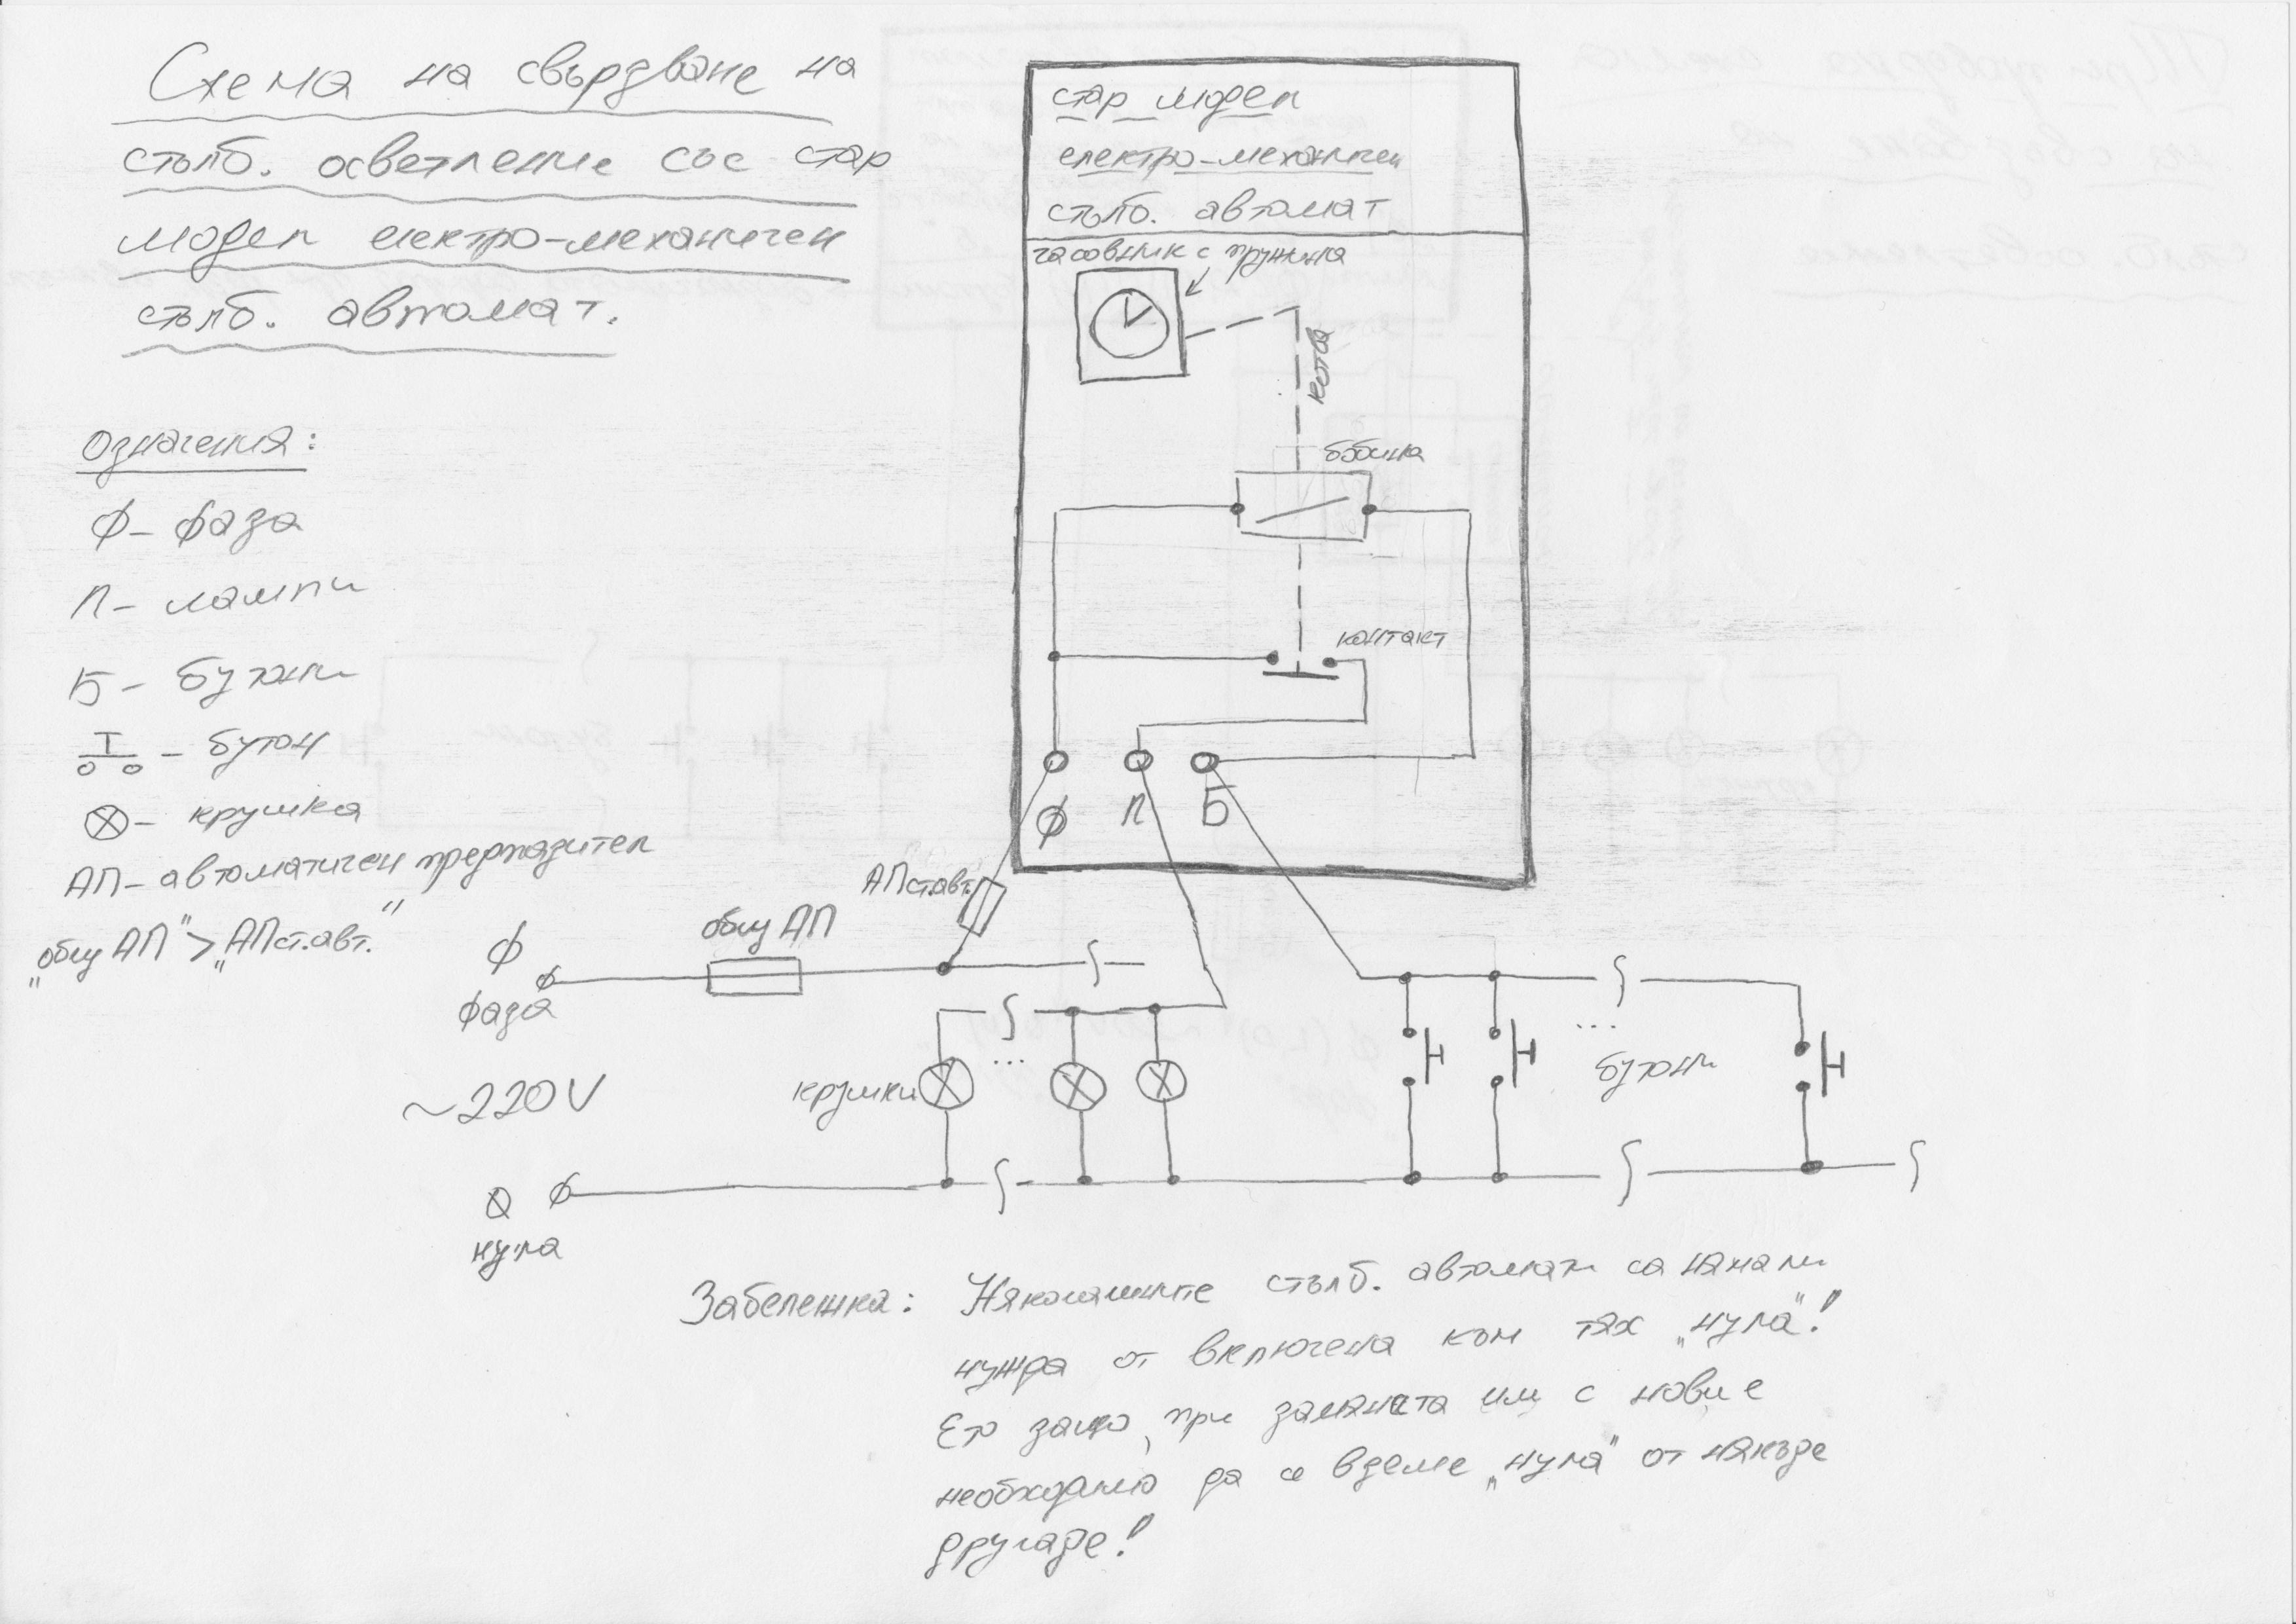 Схема на свързване на
стълб. осветление със стар
модел електро-механичен
стълб. автомат.
Означения:
Ф - фаза
Л - лампи
Б - бутони
- бутон
- крушка
АП - автоматичен предпазител
"общ АП" > "АП ст.авт."
стар модел
електро-механичен
стълб. автомат
часовник с пружина
котва
бобина
контакт
Ф Л Б
АП ст.авт.
общ АП
Ф
фаза
~220V
крушки
...
...
бутони
нула
Забележка: Някогашните стълб. автомати са нямали
нужда от включена към тях "нула"!
Ето защо, при замяната им с нови е
необходимо да се вземе "нула" от някъде
другаде!